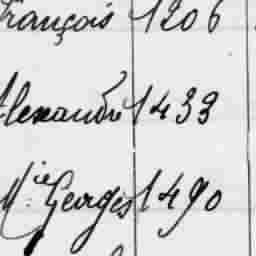 François 1206
Alexandre 1433
Mie Georges 1490